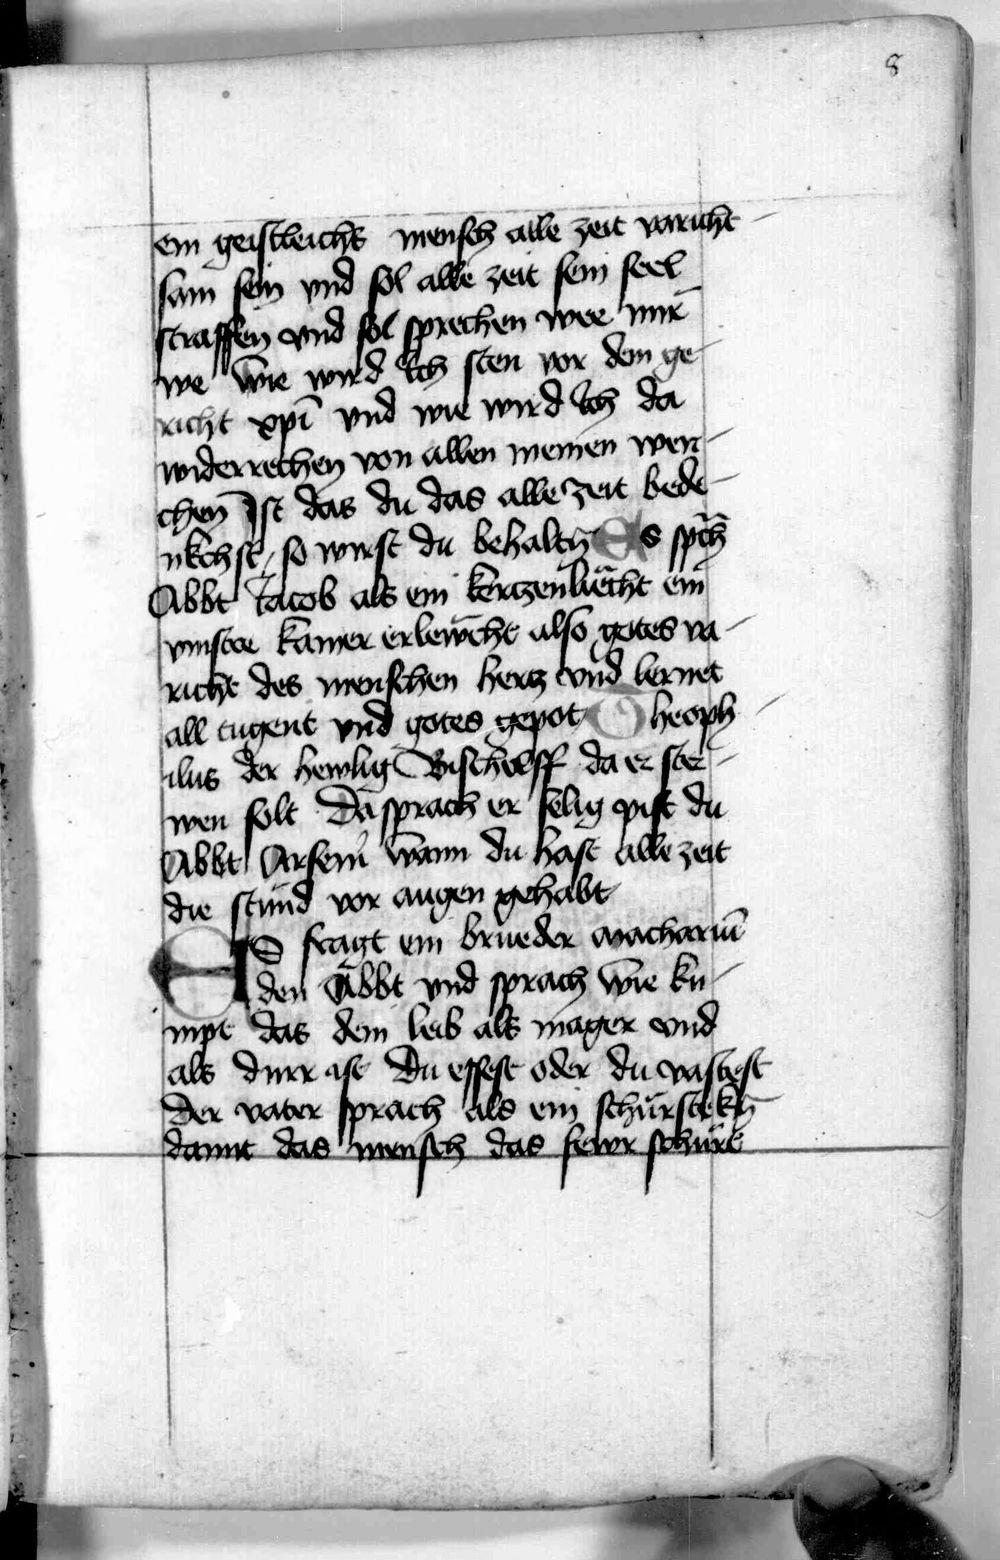 8
ein geistleichs mensch alle zeit voricht
sam sein vnd sol alle zeit sein seel
straffen vnd sol sprechen wee mir
we wie wird Ich sten vor dem ge
richt xpī vnd wie wird Ich da
widerrechen von allen meinen wer
chen Ist das du das alle zeit bede
nkchst so wirst du behaltn̄ Es sprch̄
Abbt Jacob als ein kertzenliecht ein
vinster kamer erlewcht also gotes vo
richt des menschen hertz vnd lernet
all tugent vnd gotes gepot Theoph
ilus der hewlig Bischolff da er ster
wen solt Da sprach er selig pist du
Abbt Arseni wann du hast alle zeit
die stund vor augen gehabt
ES fragt ein brueder Machariū
den Abbt vnd sprach wie ku
mpt das dein leib als mager vnd
als durr ist Du essest oder du vastest
Der vater sprach als ein schürstekn̄
damit das mensch das fewr schürt